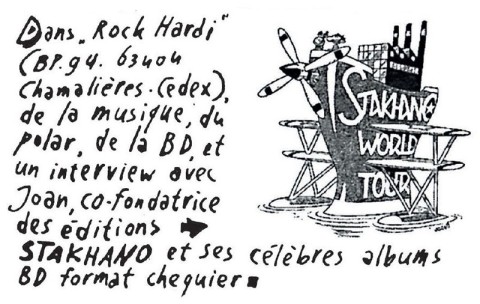 Dans „Rock Hardi"
(BP.94. 63404
Chamalières.Cedex),
de la musique, du
polar, de la BD, et
un interview avec
Joan, co-fondatrice
des éditions
STAKHANO et ses célèbres albums
BD format chequier
STAKHANO
WORLD
TOUR